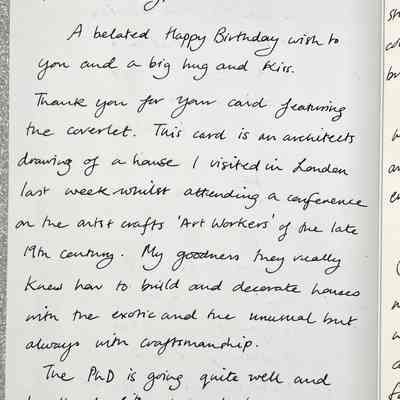 A belated Happy Birthday wish to
you and a big hug and kiss.
Thank you for your card featuring
the coverlet. This card is an architects
drawing of a house I visited in London
last week whilst attending a conference
on the arts + crafts 'Art Workers' of the late
19th century. My goodness they really
knew how to build and decorate houses
with the exotic and the unusual but
always with craftsmanship.
The PhD is going quite well and